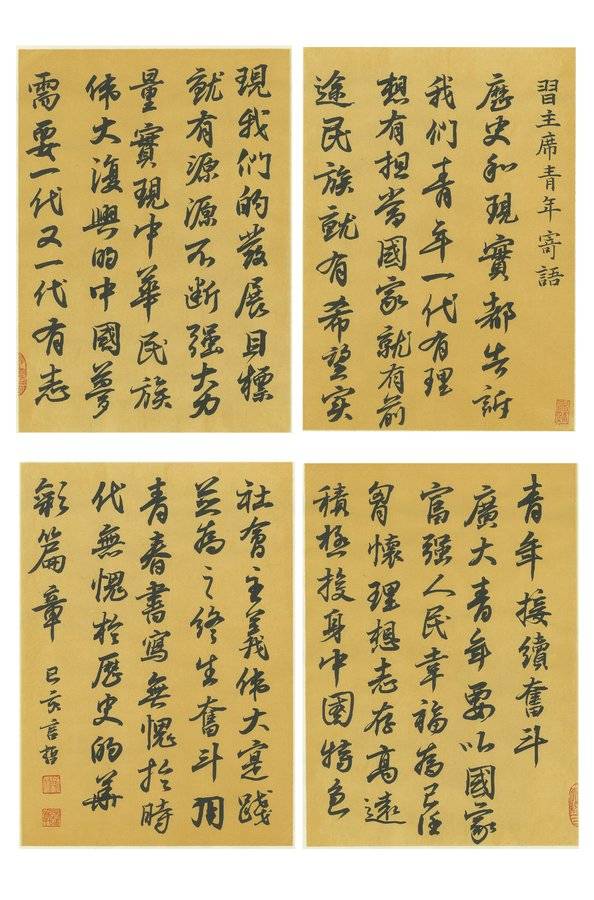 習主席青年寄語
歷史和現實都告訴
我们青年一代有理
想有担當國家就有前
途民族就有希望实
現我们的發展目標
就有源源不断强大力
量實現中華民族
伟大復興的中國夢
需要一代又一代有志
青年接續奮斗
廣大青年要以國家
富强人民幸福為己任
胷懷理想志存高遠
積極投身中國特色
社會主義伟大寔踐
并為之终生奮斗用
青春書寫無愧於時
代無愧於歷史的華
彩篇章
己亥言哲